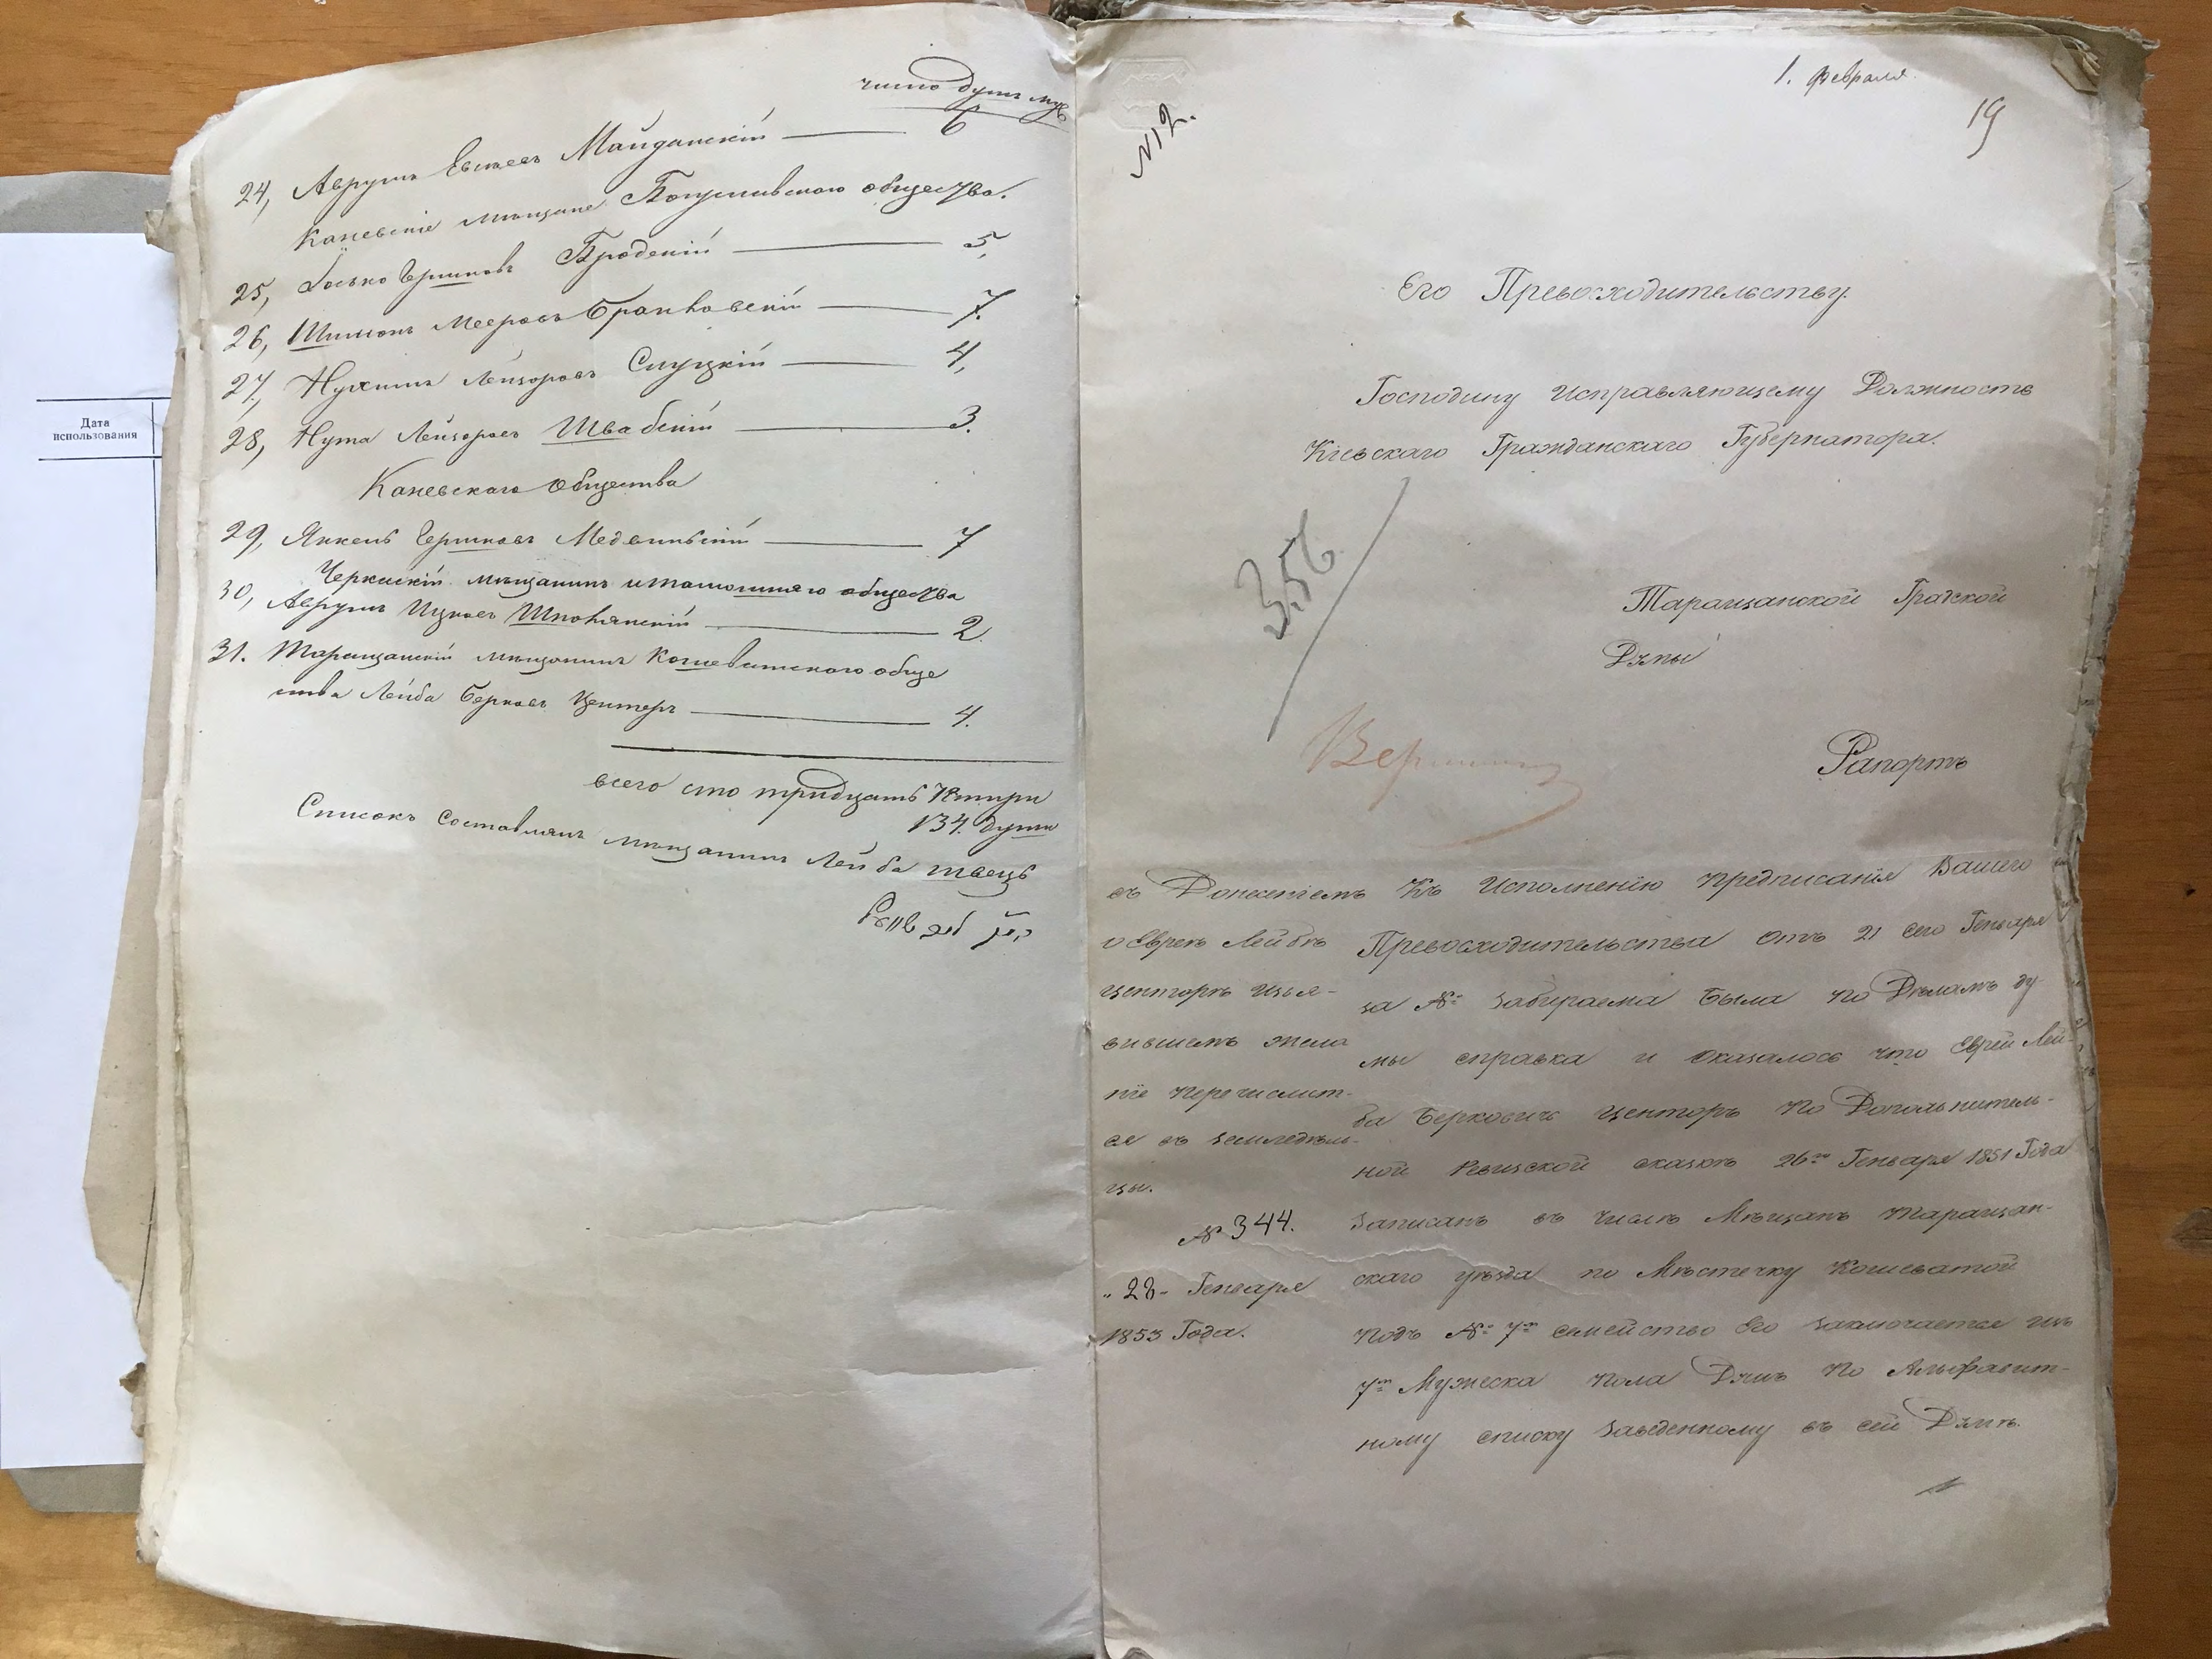 Дата
использования
число душъ муж
24, Аврумъ Евсеевъ Майданскій 6
Каневскіе мѣщане Богуславскаго общества.
25, Іосько Гершковъ Бродскій 5,
26, Шимонъ Мееровъ Бранловскій 7.
27, Нухимъ Лейзоровъ Слуцкій 4,
28, Нута Лейзоровъ Швабскій 3.
Каневскаго общества
29, Янкель Гершковъ Медвинскій 7
Черкаскій мѣщанинъ общества
30, Аврумъ Ицковъ Шполянскій 2
31. Таращанскій мѣщанинъ Кошеватскаго обще
ства Лейба Берковъ Центеръ 4.
всего сто тридцать четыри
134. души
Списокъ составлялъ мѣщанинъ Лейба швецъ
1. февраля
19
№ 12.
Его Превосходительству.
Господину Исправляющему Должность
Кіевскаго Гражданскаго Губернатора.
356
Таращанской Градской
Думы
Рапортъ
съ Донесеніемъ
о Евреѣ Лейбѣ
Центорѣ изъя-
вившемъ жела
ніе перечислит-
ся въ земледѣль-
цы.
№ 344.
"28" Генваря
1853 Года.
Къ Исполненію предписанія Вашего
Превосходительства отъ 21 сего Генваря
за № забираема была по Дѣламъ ду
мы справка и оказалось что Еврей Лей-
ба Берковичъ Центоръ по Дополнитель-
ной Ревизской сказкѣ 26го Генваря 1851 Года
записанъ въ числѣ Мѣщанъ Таращан-
скаго уѣзда по Мѣстечку Кошеватой
подъ № 7мъ семейство Его заключается изъ
7ми Мужеска пола Душъ по Алфавит-
ному списку заведенному въ сей Думѣ.